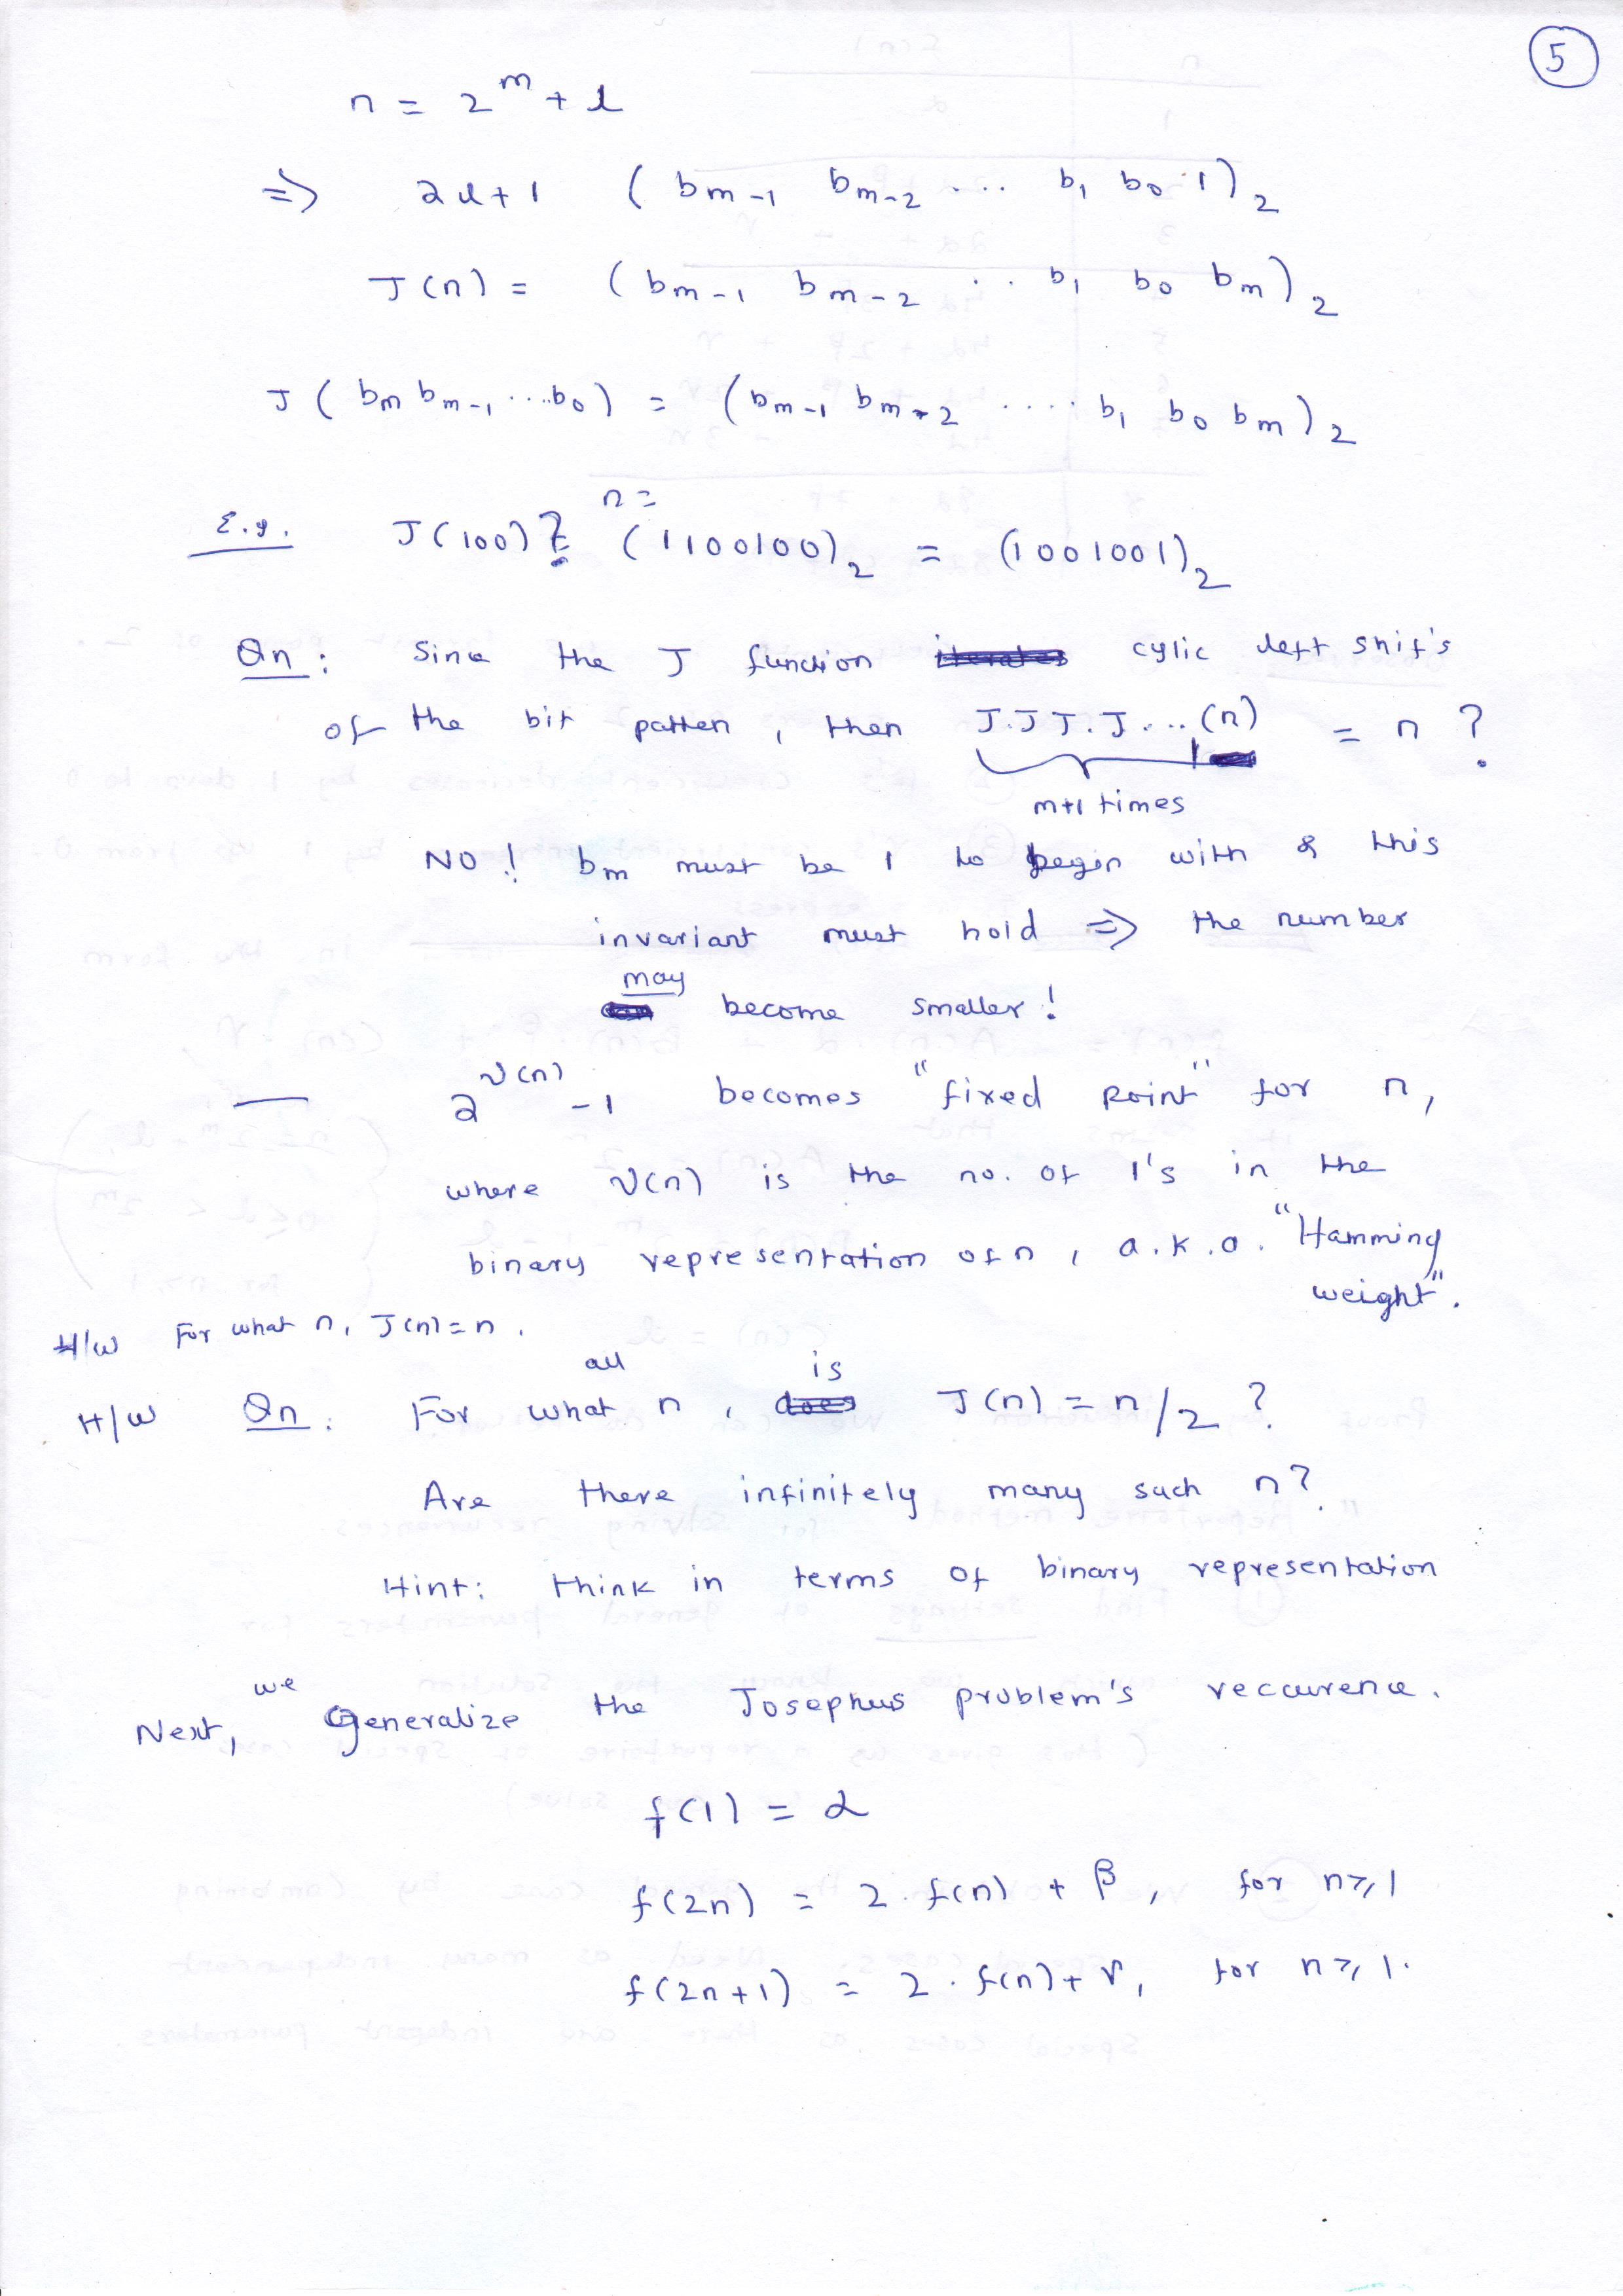 5
n = 2^m + l
=> 2l+1 ( bm-1 bm-2 ... b1 b0 1)2
J(n) = ( bm-1 bm-2 .. b1 b0 bm)2
J ( bm bm-1 ....b0 ) = ( bm-1 bm-2 .... b1 b0 bm)2
n =
E.g. J(100)? (1100100)2 = (1001001)2
Qn: Since the J function iterates cylic left shif's
of the bit patten, then J.J J.J....(n) = n ?
m+1 times
NO! bm must be 1 to begin with & this
invariant must hold => the number
may
become smaller!
— 2^ν(n) -1 becomes "fixed point" for n,
where ν(n) is the no. of 1's in the
binary representation of n, a.k.a. "Hamming
weight".
H/W For what n, J(n)=n.
all is
H/W Qn: For what n, does J(n) = n/2 ?
Are there infinitely many such n?
Hint: think in terms of binary representation
we
Next, Generalize the Josephus problem's reccurence.
f(1) = α
f(2n) = 2 . f(n) + β, for n≥1
f(2n+1) = 2 . f(n)+ γ, for n≥1.